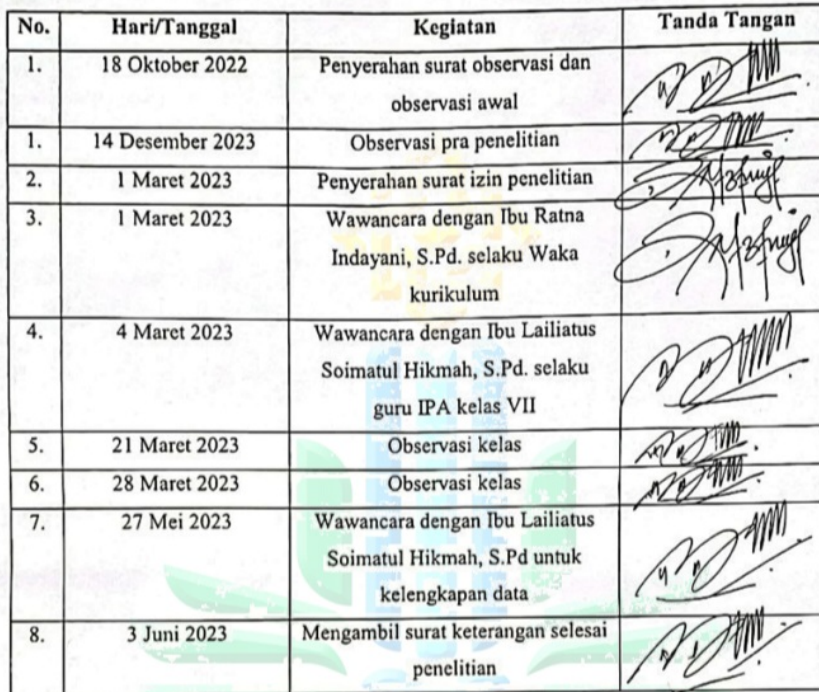 No. Hari/Tanggal Kegiatan Tanda Tangan
1. 18 Oktober 2022 Penyerahan surat observasi dan
observasi awal
1. 14 Desember 2023 Observasi pra penelitian
2. 1 Maret 2023 Penyerahan surat izin penelitian
3. 1 Maret 2023 Wawancara dengan Ibu Ratna
Indayani, S.Pd. selaku Waka
kurikulum
4. 4 Maret 2023 Wawancara dengan Ibu Lailiatus
Soimatul Hikmah, S.Pd. selaku
guru IPA kelas VII
5. 21 Maret 2023 Observasi kelas
6. 28 Maret 2023 Observasi kelas
7. 27 Mei 2023 Wawancara dengan Ibu Lailiatus
Soimatul Hikmah, S.Pd untuk
kelengkapan data
8. 3 Juni 2023 Mengambil surat keterangan selesai
penelitian